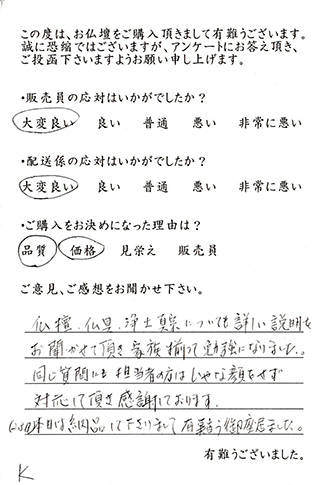 この度は、お仏壇をご購入頂きまして有難うございます。
誠に恐縮ではございますが、アンケートにお答え頂き、
ご投函下さいますようお願い申し上げます。
・販売員の応対はいかがでしたか？
大変良い 良い 普通 悪い 非常に悪い
・配送係の応対はいかがでしたか？
大変良い 良い 普通 悪い 非常に悪い
・ご購入をお決めになった理由は？
品質 価格 見栄え 販売員
ご意見、ご感想をお聞かせ下さい。
仏壇、仏具、浄土真宗についても詳しい説明を
お聞かせて頂き家族揃って勉強になりました。
同じ質問にも担当者の方はいやな顔をせず
対応して頂き感謝しております。
本日は納品して下さりまして有難う御座居ました。
有難うございました。
K